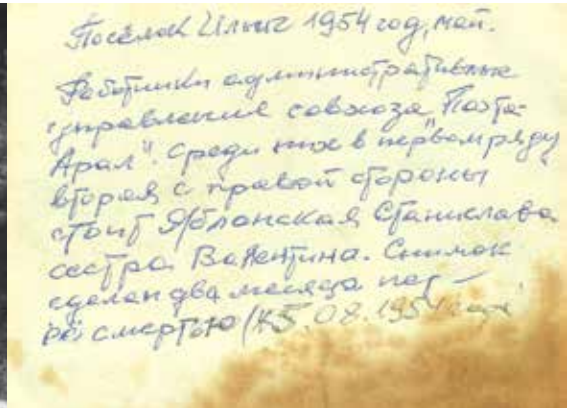 Посёлок Ильич 1954 год, май.
Работники административные
управления совхоза „Пахта-
Арал". Среди них в первом ряду
вторая с правой стороны
стоит Яблонская Станислава
сестра Валентина. Снимок
сделан два месяца пе-
ред смертью 5.08.1954